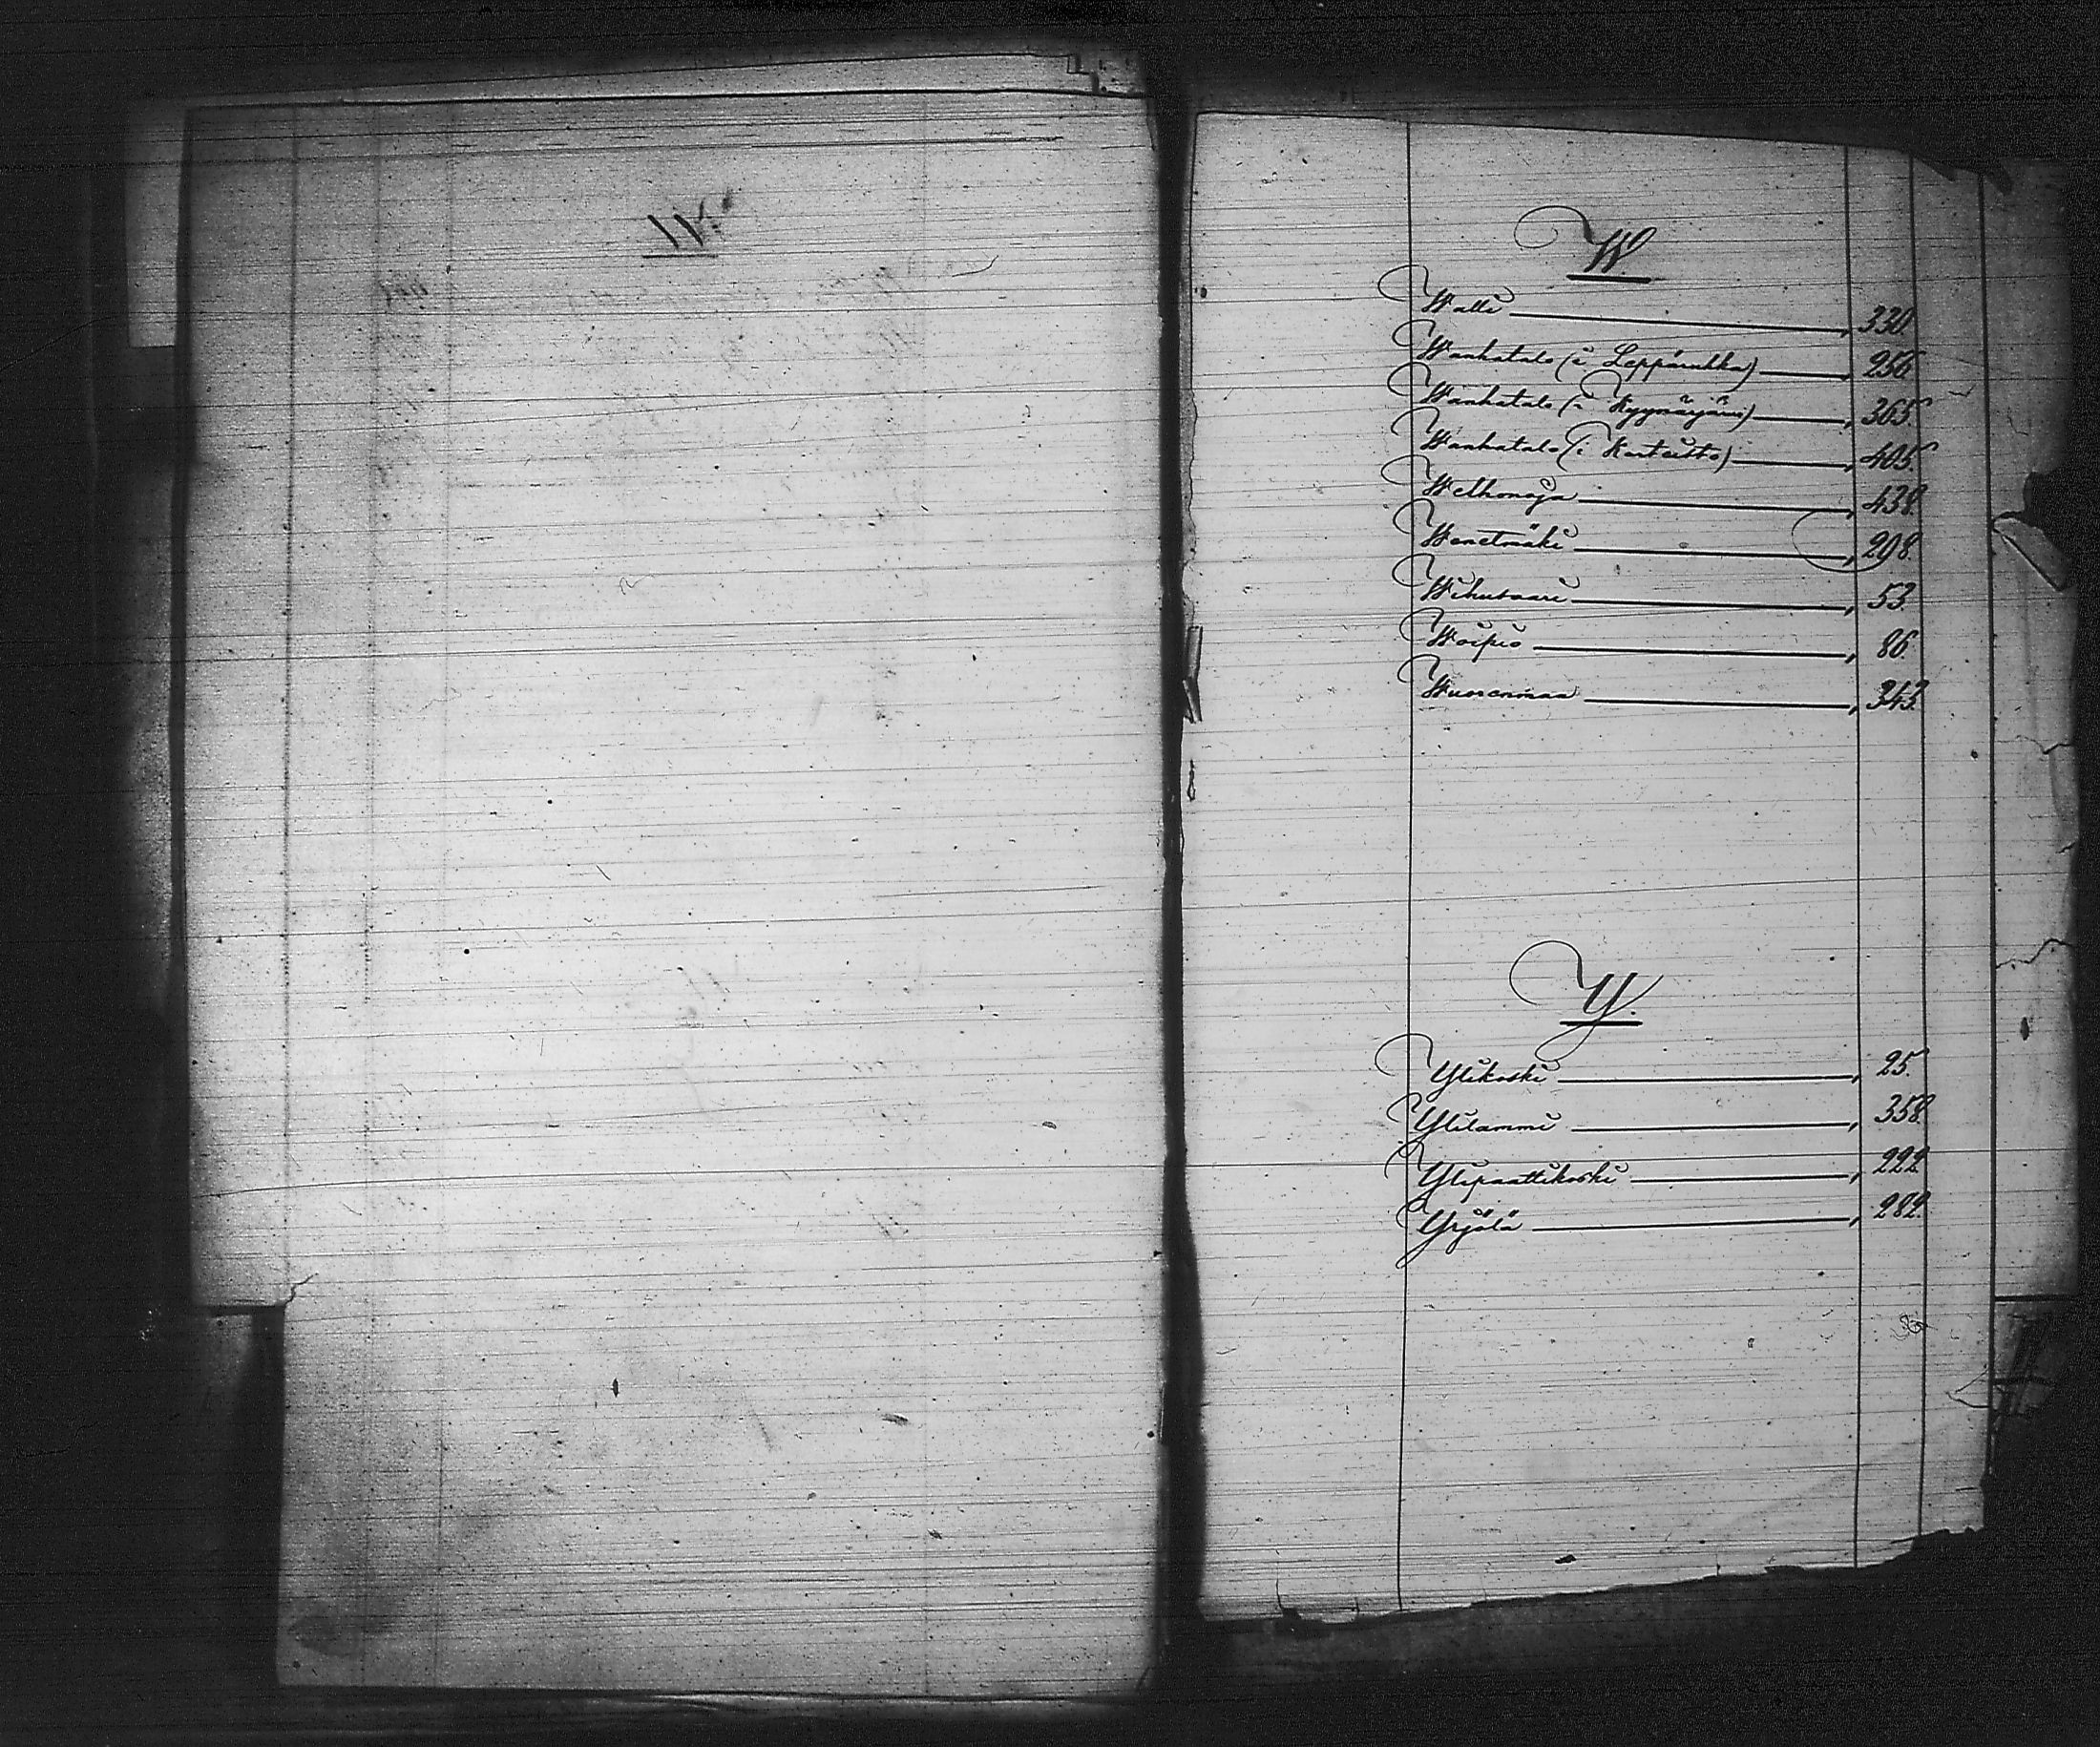 W.
Walli 330
Wanhatalo (i Leppäruhka) 256.
Wanhatalo (i Kyynärjärvi) 365.
Wanhatalo (i Korteitto) 405.
Welhonoja 438.
Wenetmäki 298.
Wihuvaari 53.
Woipio 86.
Wuorenmaa 343.
Y.
Ylikoski 25.
Ylilammi 358.
Ylipaattikoski 222.
Yrjölä 282.